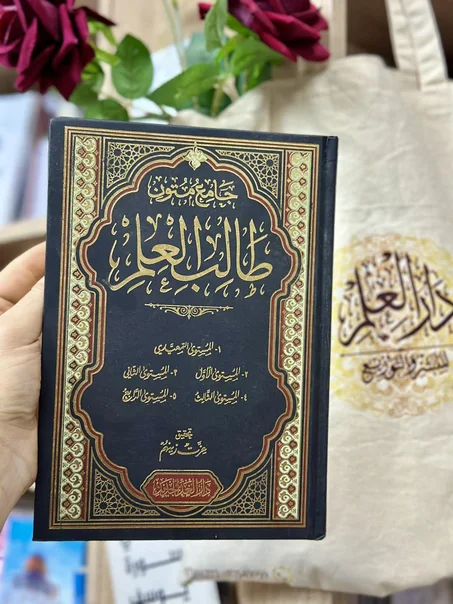 جامع متون
طالب العلم
١- المستوى التمهيدي
٢- المستوى الأول ٣- المستوى الثاني
٤- المستوى الثالث ٥- المستوى الرابع
تحقيق
عزت زينهم
دار العلم
للنشر والتوزيع
سورة
يوسف